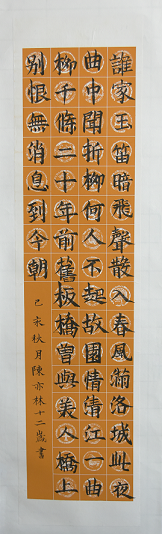 誰家玉笛暗飛聲散入春風滿洛城此夜
曲中聞折柳何人不起故園情清江一曲
柳千條二十年前舊板橋曾與美人橋上
別恨無消息到今朝
己亥秋月陳亦林十二歲書